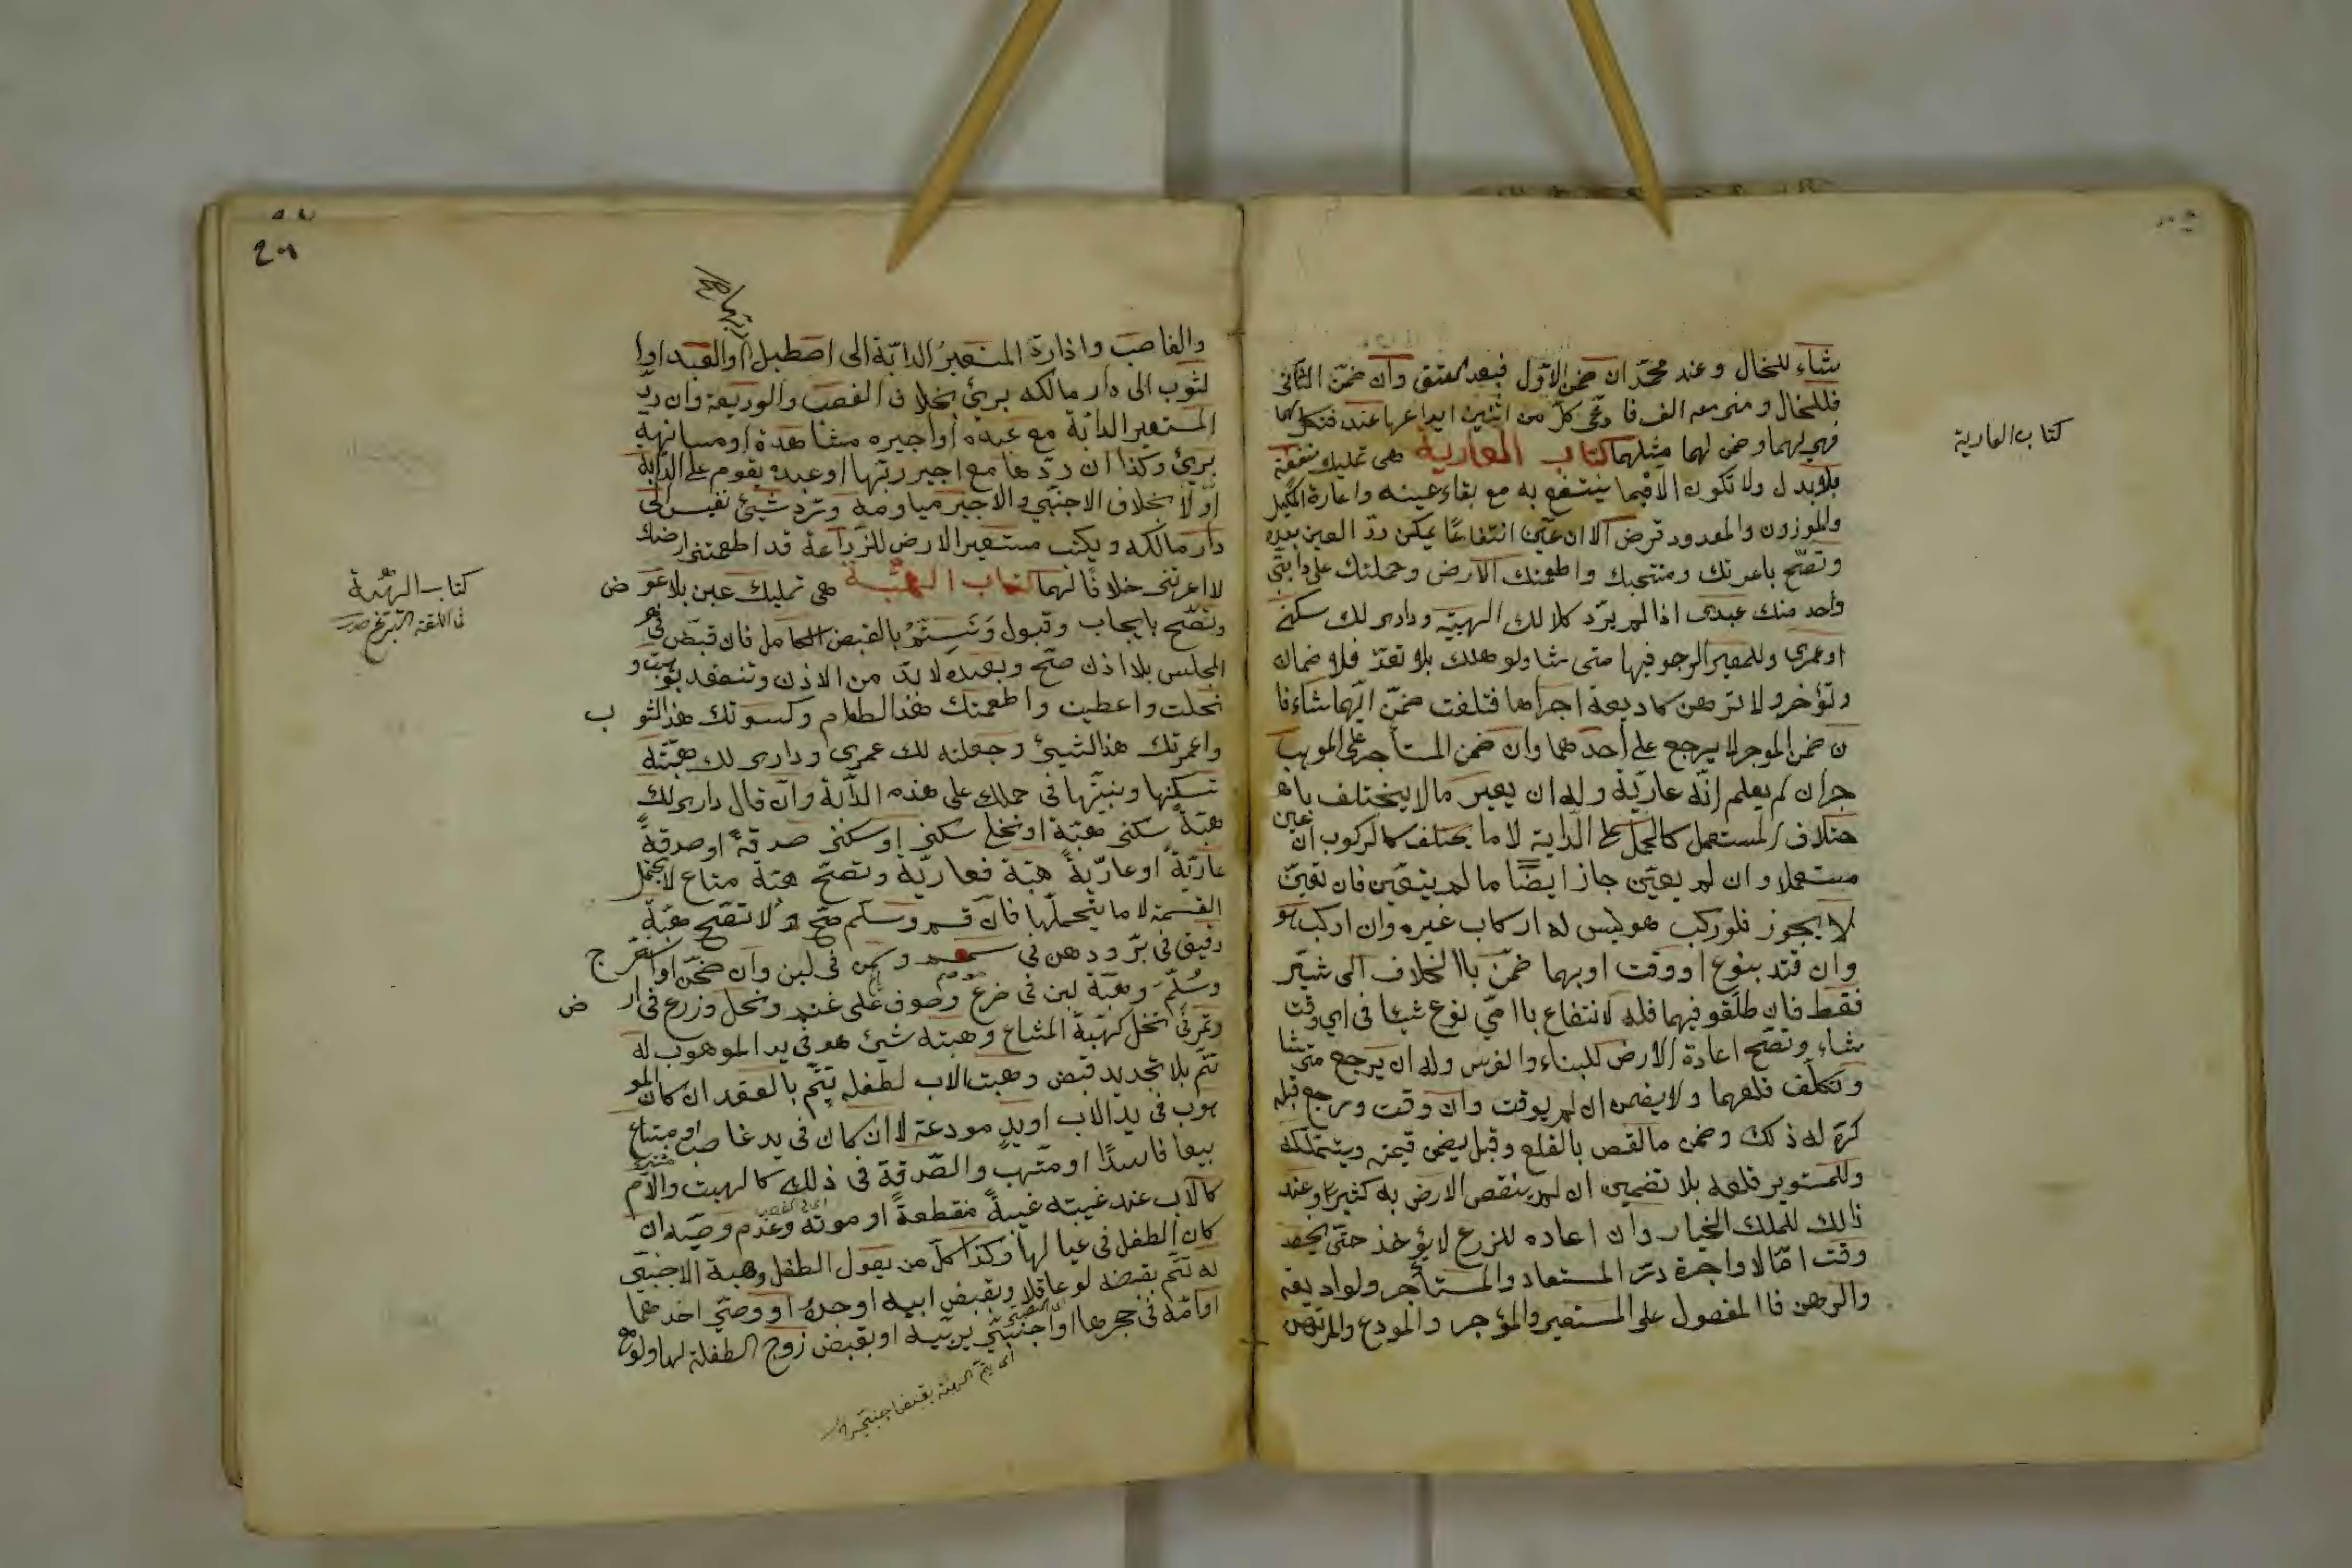 كتاب العارية
شاء للخال وعند محمد ان ضمن الاول فبعد المعتق وان ضمن الثانى
فللخال ومن معه الف فادعى كل من اثنين ايداعها عنده فنكل لهما
فهى لهما وضمن لهما مثلها كتاب العارية هى تمليك منفعة
بلا بدل ولا تكون الا فيما ينتفع به مع بقاء عينه واعارة المكيل
والموزون والمعدود قرض الا ان عين انتفاعا يمكن رد العين بعده
وتصح باعرتك ومنحتك واطعمتك الارض وحملتك على دابتى
واخدمتك عبدى اذا لم يرد كلا لك الهبة ودارى لك سكنى
او عمرى وللمعير الرجوع فيها متى شا ولو هلك بلا تعد فلا ضمان
ولا تؤجر ولا ترهن كالوديعة اجراها فتلفت ضمن ايهما شاء فا
ن ضمن الموجر لا يرجع على احد هما وان ضمن المستأجر على الموجب
جر ان لم يعلم انه عارية وله ان يعير مالا يختلف با
ختلاف المستعمل كالحمل على الدابة لا ما يختلف كالركوب ان عين
مستعملا وان لم يعين جاز ايضا ما لم يتعين فان تعين
لا يجوز فلو ركب هو ليس له اركاب غيره وان اركب هو
وان قيد بنوع او وقت او بهما ضمن باالخلاف الى شر
فقط فان طلقو فيهما فله لانتفاع باامى نوع شئا فى اى وقت
شاء وتصح اعادة الارض للبناء والغرس وله ان يرجع متى شا
وتكلف قلعهما ولا يضمن ان لم يوقت وان وقت ورجع قبله
كره له ذلك وضمن ما نقص بالقلع وقيل يضمن قيمته ويتملكه
وللمستوير قلعه بلا تضمين ان لم ينقص الارض به كثيرا وعند
ذلك للملك الخيار وان اعاده للزرع لا يؤخذ حتى يحصد
وقت امالا واجرة رد المستعاد والمستأجر ولواديعة
والرهن فاالمغصول على المستعير والمؤجر والمودع والمرتهن
والغاصب واذا رد المستعير الدابة الى اصطبل او العبد اوا
لثوب الى دار مالكه برئ بخلاف الغصب والوديعة وان رد
المستعير الدابة مع عبده او اجيره مشاهدة او مسانهة
برئ وكذا ان ردها مع اجير ربها او عبده يقوم على الدابة
او لا بخلاف الاجنبى والاجير مياومة وترد شيئ نفيس الى
دار مالكه ويكتب مستعير الارض للزراعة قد اطعمتنى ارضك
لا اعرتنى خلافا لهما كتاب الهبة هى تمليك عين بلا عوض
كتاب الهبة
فى اللغة التبرع
وتصح بايجاب وقبول وتتم بالقبض الكامل فان قبض فى
المجلس بلا اذن صح وبعده لا بد من الاذن وتنعقد بوهبت و
نحلت واعطيت واطعمتك هذا الطعام وكسوتك هذا الثوب
واعمرتك هذا الشيئ وجعلته لك عمرى ودارى لك هبة
تسكنها وبنيتها فى حملك على هذه الدابة وان قال دارى لك
هبة سكنى هبة او نحلى سكنى او سكنى صدقة او صدقة
عارية او عارية هبة فعارية وتصح هبة متاع لا يحتمل
القسمة لا ما يتحملها فان قسم وسلم صح ولا تصح هبة
دقيق فى بر ودهن فى سمسم وسمن فى لبن وان طحن او استخرج
وسلم وهبة لبن فى ضرع وصوف على غنم ونخل وزرع فى ارض
وتمر فى نخل كهبة المشاع وهبته شيئ هو فى يد الموهوب له
تتم بلا تجديد قبض وهبت الاب لطفله يتم بالعقد ان كان المو
هوب فى يد الاب او يد مودعة لا ان كان فى يد غاصب او مبتاع
بيعا فاسدا او متهب والصدقة فى ذلك كالهبت والام
كالاب عند غيبته غيبة منقطعة او موته وعدم وصيه ان
كان الطفل فى عيالها وكذا كل من يعول الطفل وهبة الاجنبى
له تتم بقبضه لو عاقلا وبقبض ابيه او جده او وصى احدهما
او امه فى حجرها او اجنبى يربيه او بقبض زوج الطفلة لها ولو مع
اى يتم الهبة بقبض اجنبى